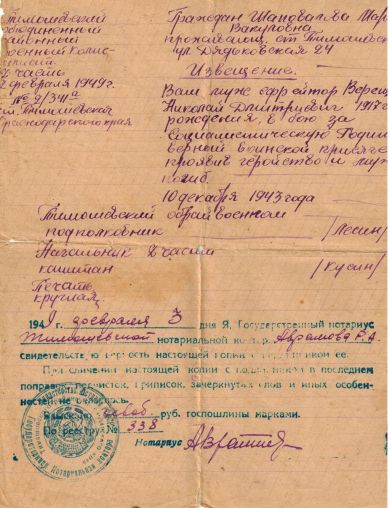 Тимошевский
объдиненный
районный
военный Комис-
сариат
2 часть
февраля 1949г.
№ 2/341а
ст. Тимошевская
Краснодарского края
Граждан Шаповалова Мар
Вакуровна
проживающ. ст Тимошевск
ул. Дядьковская 24
Извещение.
Ваш муж ефрейтор Верещ
Николай Дмитриевич 1917 г
рождения, в бою за
Социалистическую Родин
верный воинской присяге
проявив геройство и муж
погиб.
10 декабря 1943 года
Тимошевский обрайвоенком
подполковник /Лесин/
Начальник 2 части
капитан /Кусин/
Печать
круглая
1949 г. февраля 3 дня Я, Государственный нотариус
Тимошевской нотариальной контор. Аврамова Р.А.
свидетельств ю верность настоящей копии с подлинником ее.
При сличении настоящей копии с подлинником в последнем
поправок, подчисток, приписок, зачеркнутых слов и иных особен-
ностей не оказалось.
руб. госпошлины марками.
По реестру № 338
Нотариус